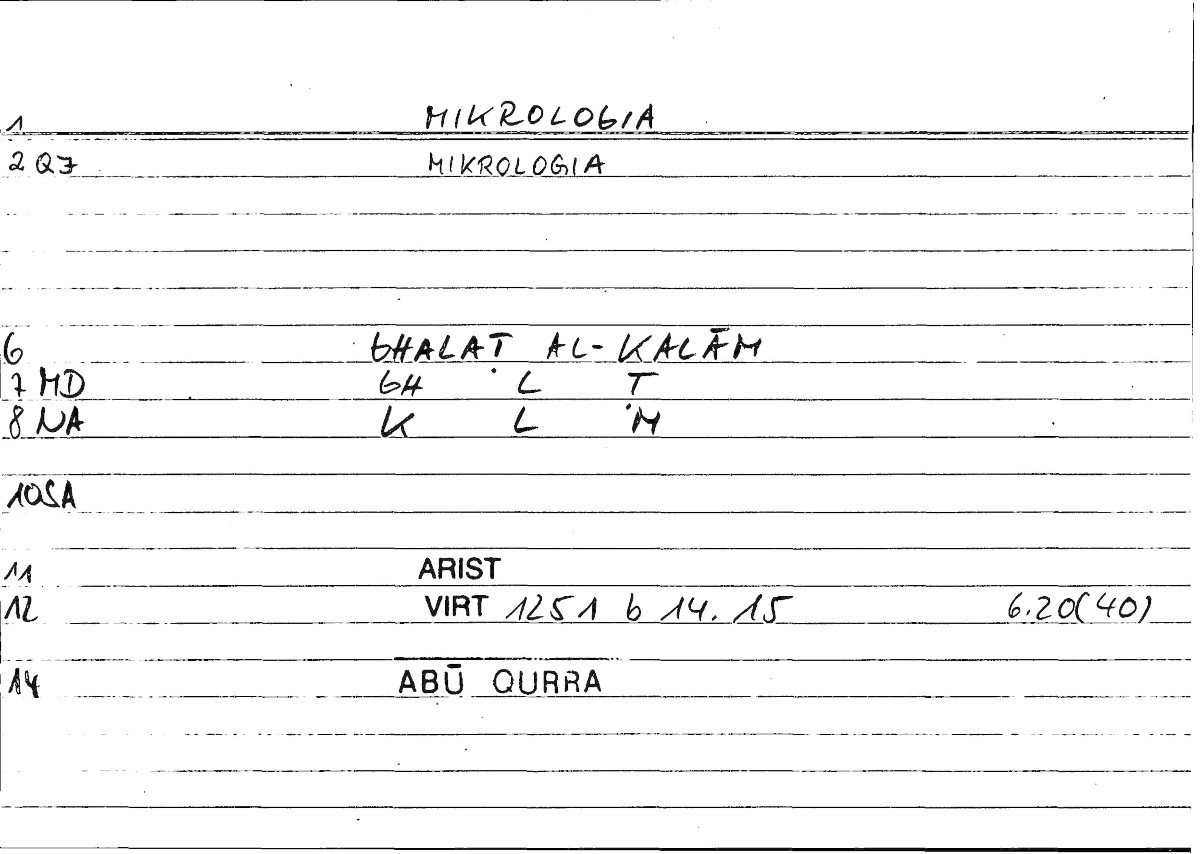 1 MIKROLOGIA
2 QJ MIKROLOGIA
6 GHALAṬ AL-KALĀM
7 MD GH L Ṭ
8 NA K L M
10SA
11 ARIST
12 VIRT 1251 b 14. 15 6.20(40)
14 ABŪ QURRA